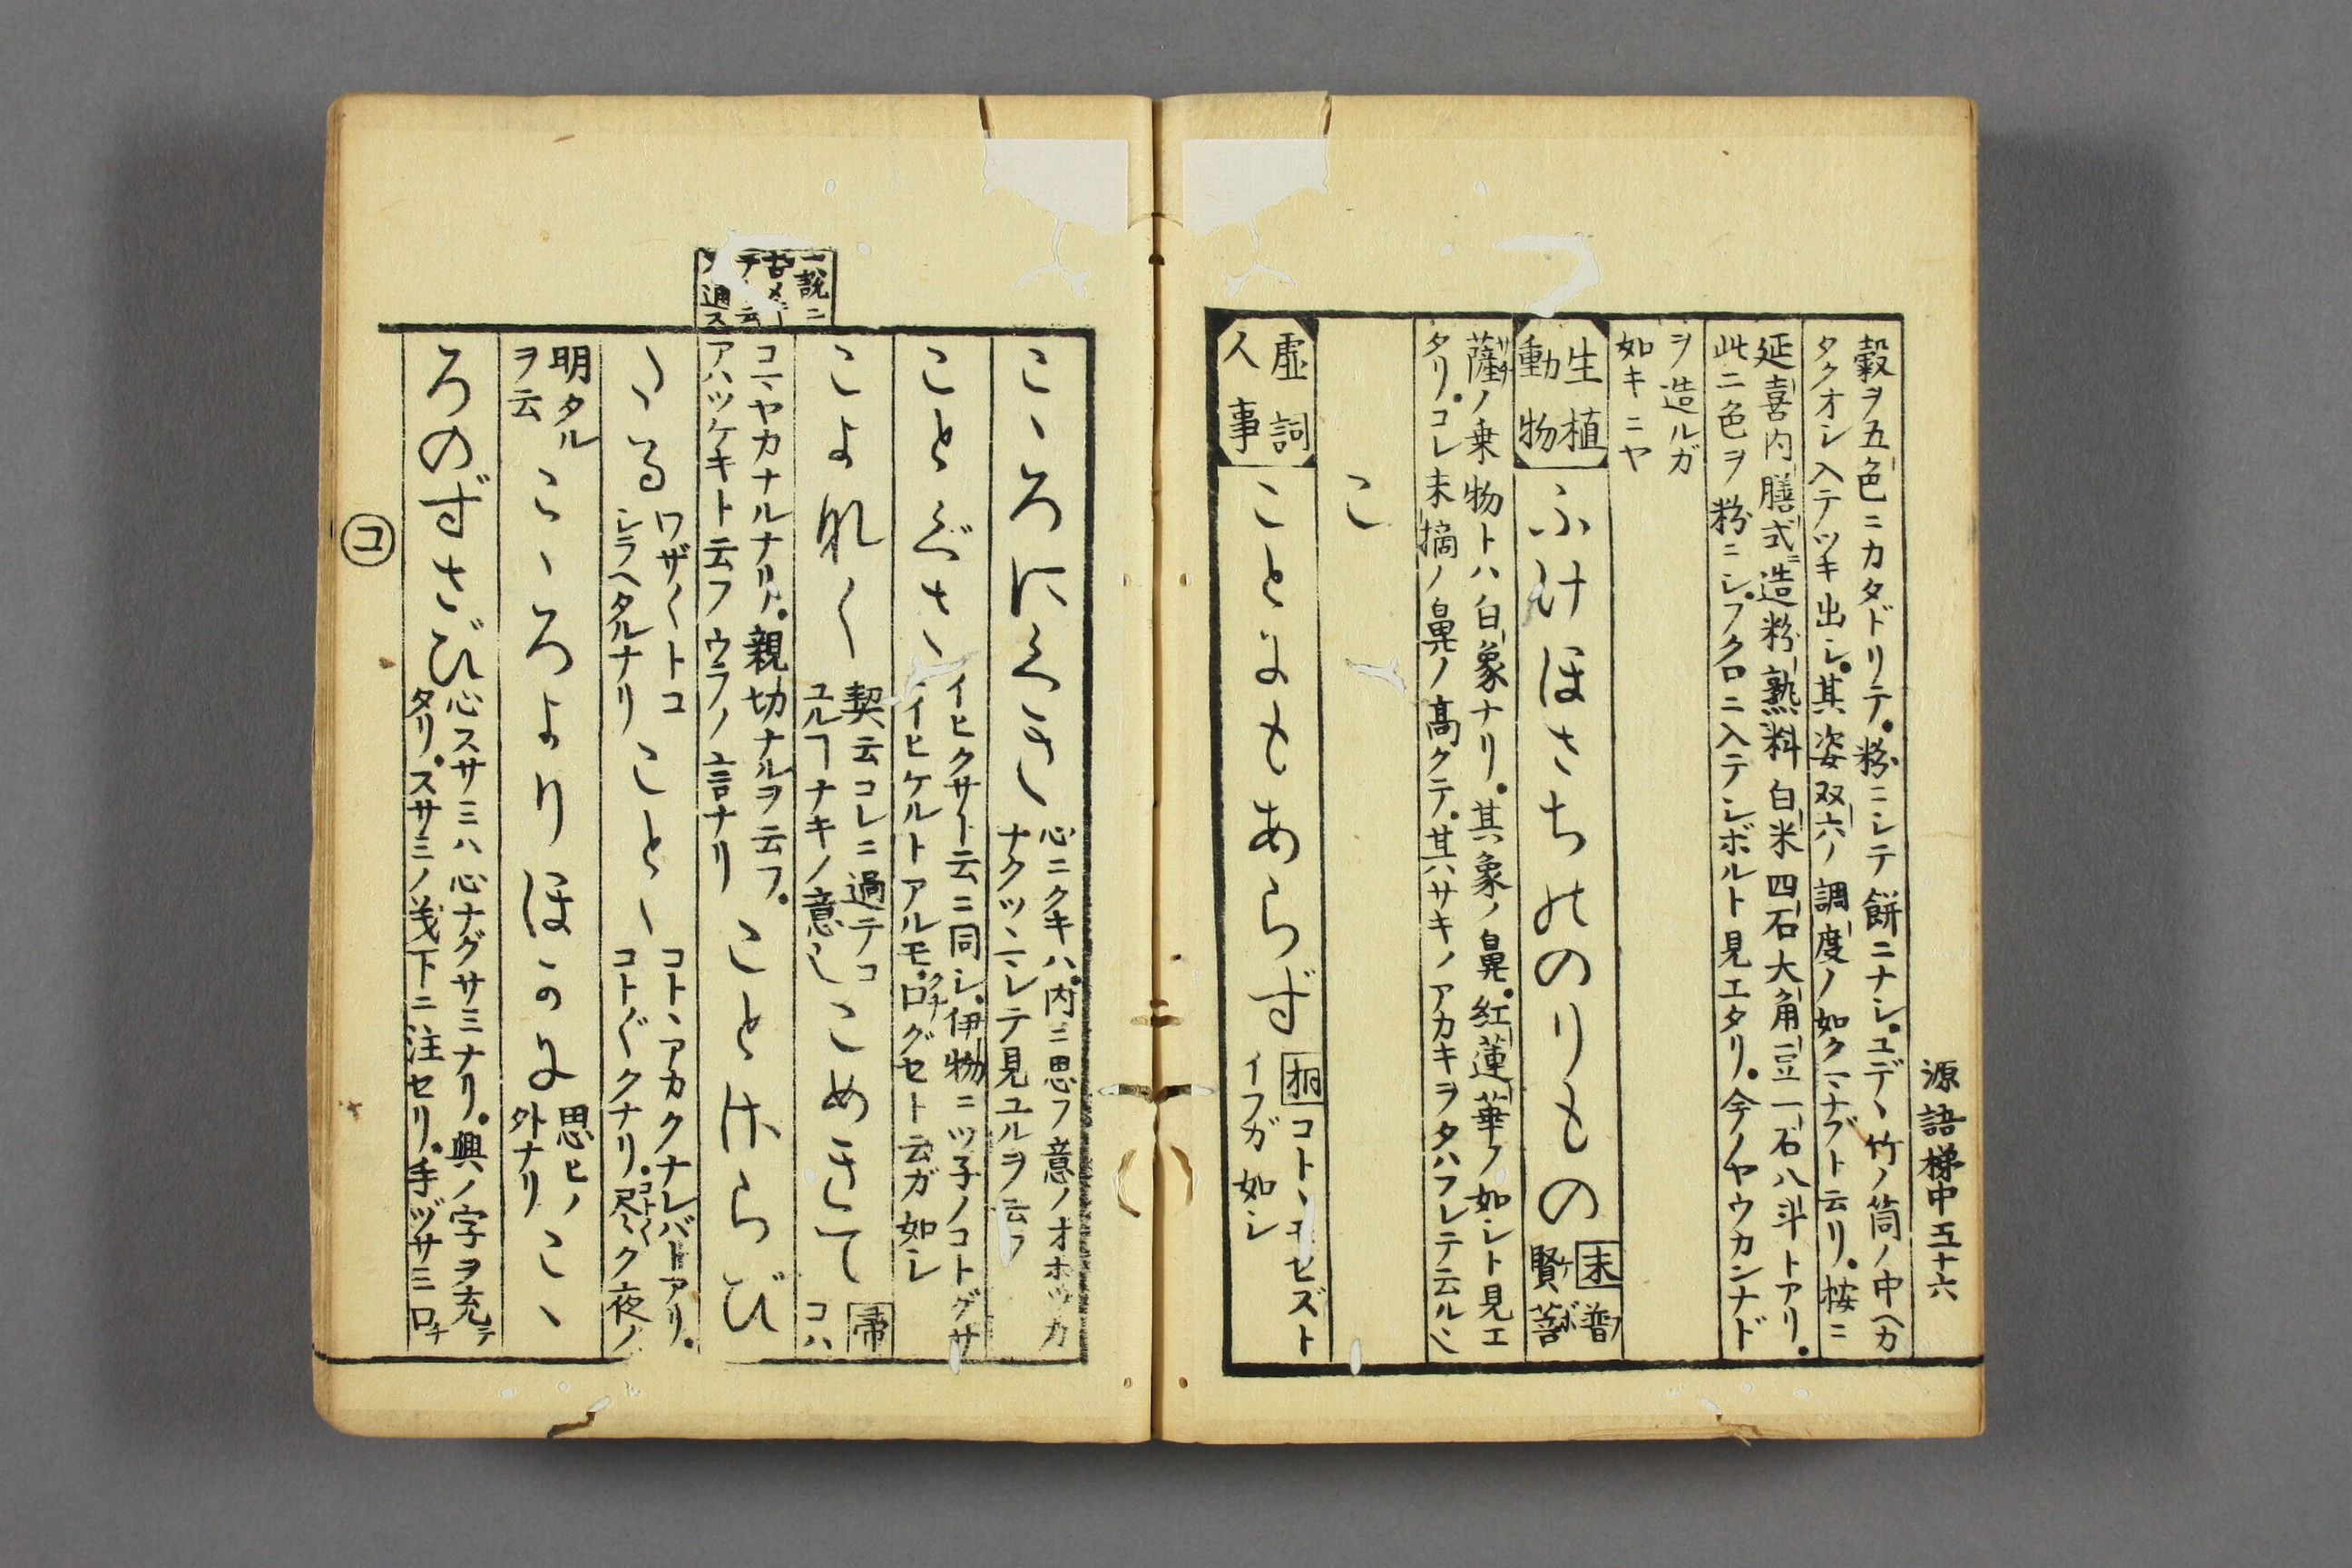 源語梯中五十六
穀ヲ五色ニカタドリテ。粉ニシテ餅ニナシ。ユデヽ竹ノ筒ノ中ヘカ
タクオシ入テツキ出シ。其姿双六ノ調度ノ如クナブト云リ。桉ニ
延喜内膳式ニ造粉熟料白米四石大角豆一石八斗トアリ。
此ニ色ヲ粉ニシ。フクロニ入テシボルト見エタリ。今ノヤウカンナド
ヲ造ルガ
如キニヤ
生植
動物
ふけほさちのりもの
末普
賢菩
薩ノ乗物トハ白象ナリ。其象ノ鼻。紅蓮華ノ如シト見エ
タリ。コレ末摘ノ鼻ノ高クテ。其サキノアカキヲタハフレテ云ル
こ
虚詞
人事
ことにもあらず
桐コトヽモセズト
イフガ如シ
こヽろにくきヽ
心ニクキハ。内ニ思フ意ノオホツカ
ナクツヽシテ見ユルヲ云フ
ことぐさヽ
イヒクサト云ニ同シ。伊物ニツ子ノコトグサ
ニイヒケルトアルモ。口グセト云ガ如シ
こよなく
契云コレニ過テコ
ユルヿナキノ意
こめきて
帚
コハ
コヤカナルナリ。親切ナルヲ云フ。
アハツケキト云フウラノ言ナリ
ことさらび
ヽる
ワザ〱トコ
シラヘタルナリ
ことヽヽ
コトヽアカクナレバトアリ。
コト〲クナリ。尽ク夜ノ
明タル
ヲ云
こヽろよりほかに
思ヒノ
外ナリ
こヽ
ろのずさび
心スサミハ心ナグサミナリ。興ノ字ヲ充テ
タリ。スサミノ義下ニ注セリ。手ヅサミ口
コ